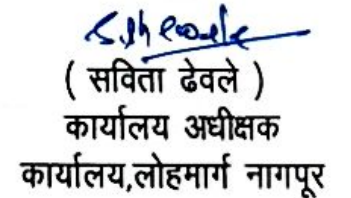 ( सविता ढेवले )
कार्यालय अधीक्षक
कार्यालय,लोहमार्ग नागपूर